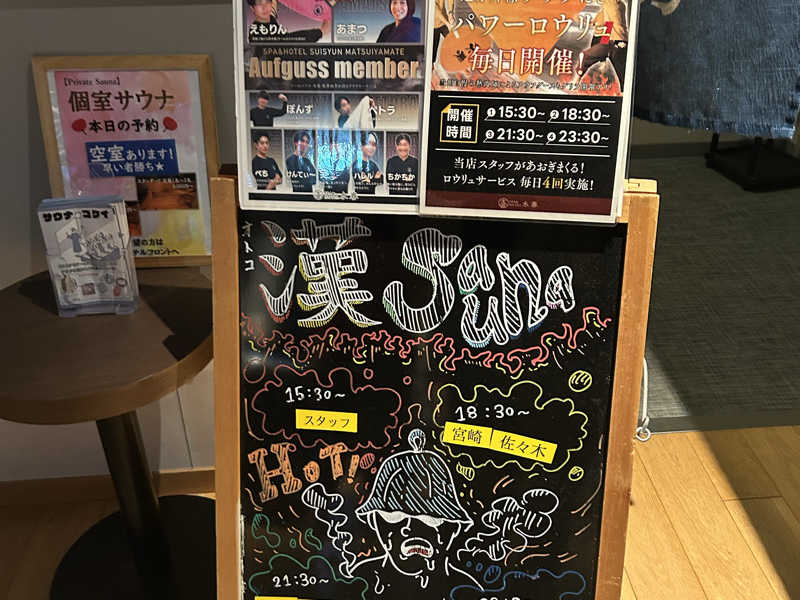 【Private Sauna】
個室サウナ
本日の予約
空室あります!
早い者勝ち★
サウナのコケイ
えもりん
あまつ
SPA&HOTEL SUISYUN MATSUIYAMATE
Aufguss member
ぽんず
トラ
べち
けんてぃ〜
ハレル
ちかちか
パワーロウリュ
毎日開催!
開催時間
①15:30~ ②18:30~
③21:30~ ④23:30~
当店スタッフがあおぎまくる!
ロウリュサービス 毎日4回実施!
水春
オトコ
漢 Sauna
15:30~
スタッフ
18:30~
宮崎 佐々木
HOT!
21:30~